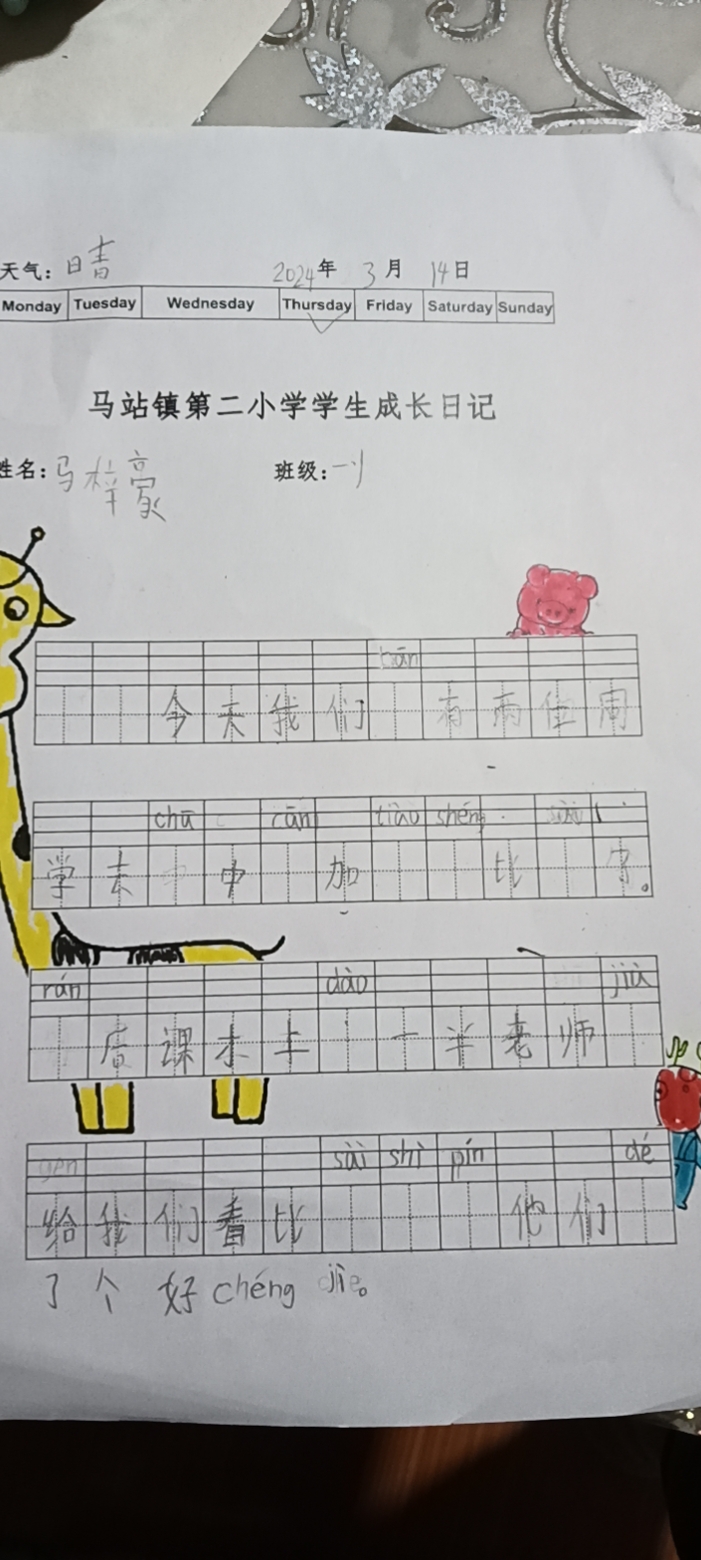 天气：晴 2024年 3月 14日
Monday Tuesday Wednesday Thursday Friday Saturday Sunday
马站镇第二小学学生成长日记
姓名：马梓豪 班级：
今天我们 bān 有两位同
学去 chū 中 cān 加 tiào shéng 比 sài
rán 后课本上 dào 一半老师 jiù
给我们看比 sài shì pín 他们 dé
了个好 chéng jie。